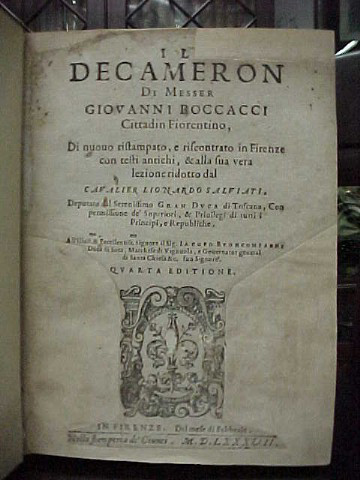 IL
DECAMERON
DI MESSER
GIOVANNI BOCCACCI
Cittadin Fiorentino,
Di nuouo ristampato, e riscontrato in Firenze
con testi antichi, & alla sua vera
lezione ridotto dal
CAVALIER LIONARDO SALVIATI,
Deputato dal Serenissimo GRAN DVCA di Toscana, Con
permissione de' Superiori, & Priuilegi di tutti i
Principi, e Republiche.
All'Illust. & Eccellentiss. Signore il Sig. IACOPO BVONCOMPAGNI
Duca di Sora, Marchese di Vignuola, e Gouernator general
di Santa Chiesa &c. suo Signore.
QVARTA EDITIONE.
IN FIRENZE. Del mese di Febbraio.
Nella stamperia de' Giunti. M.D.LXXXVII.